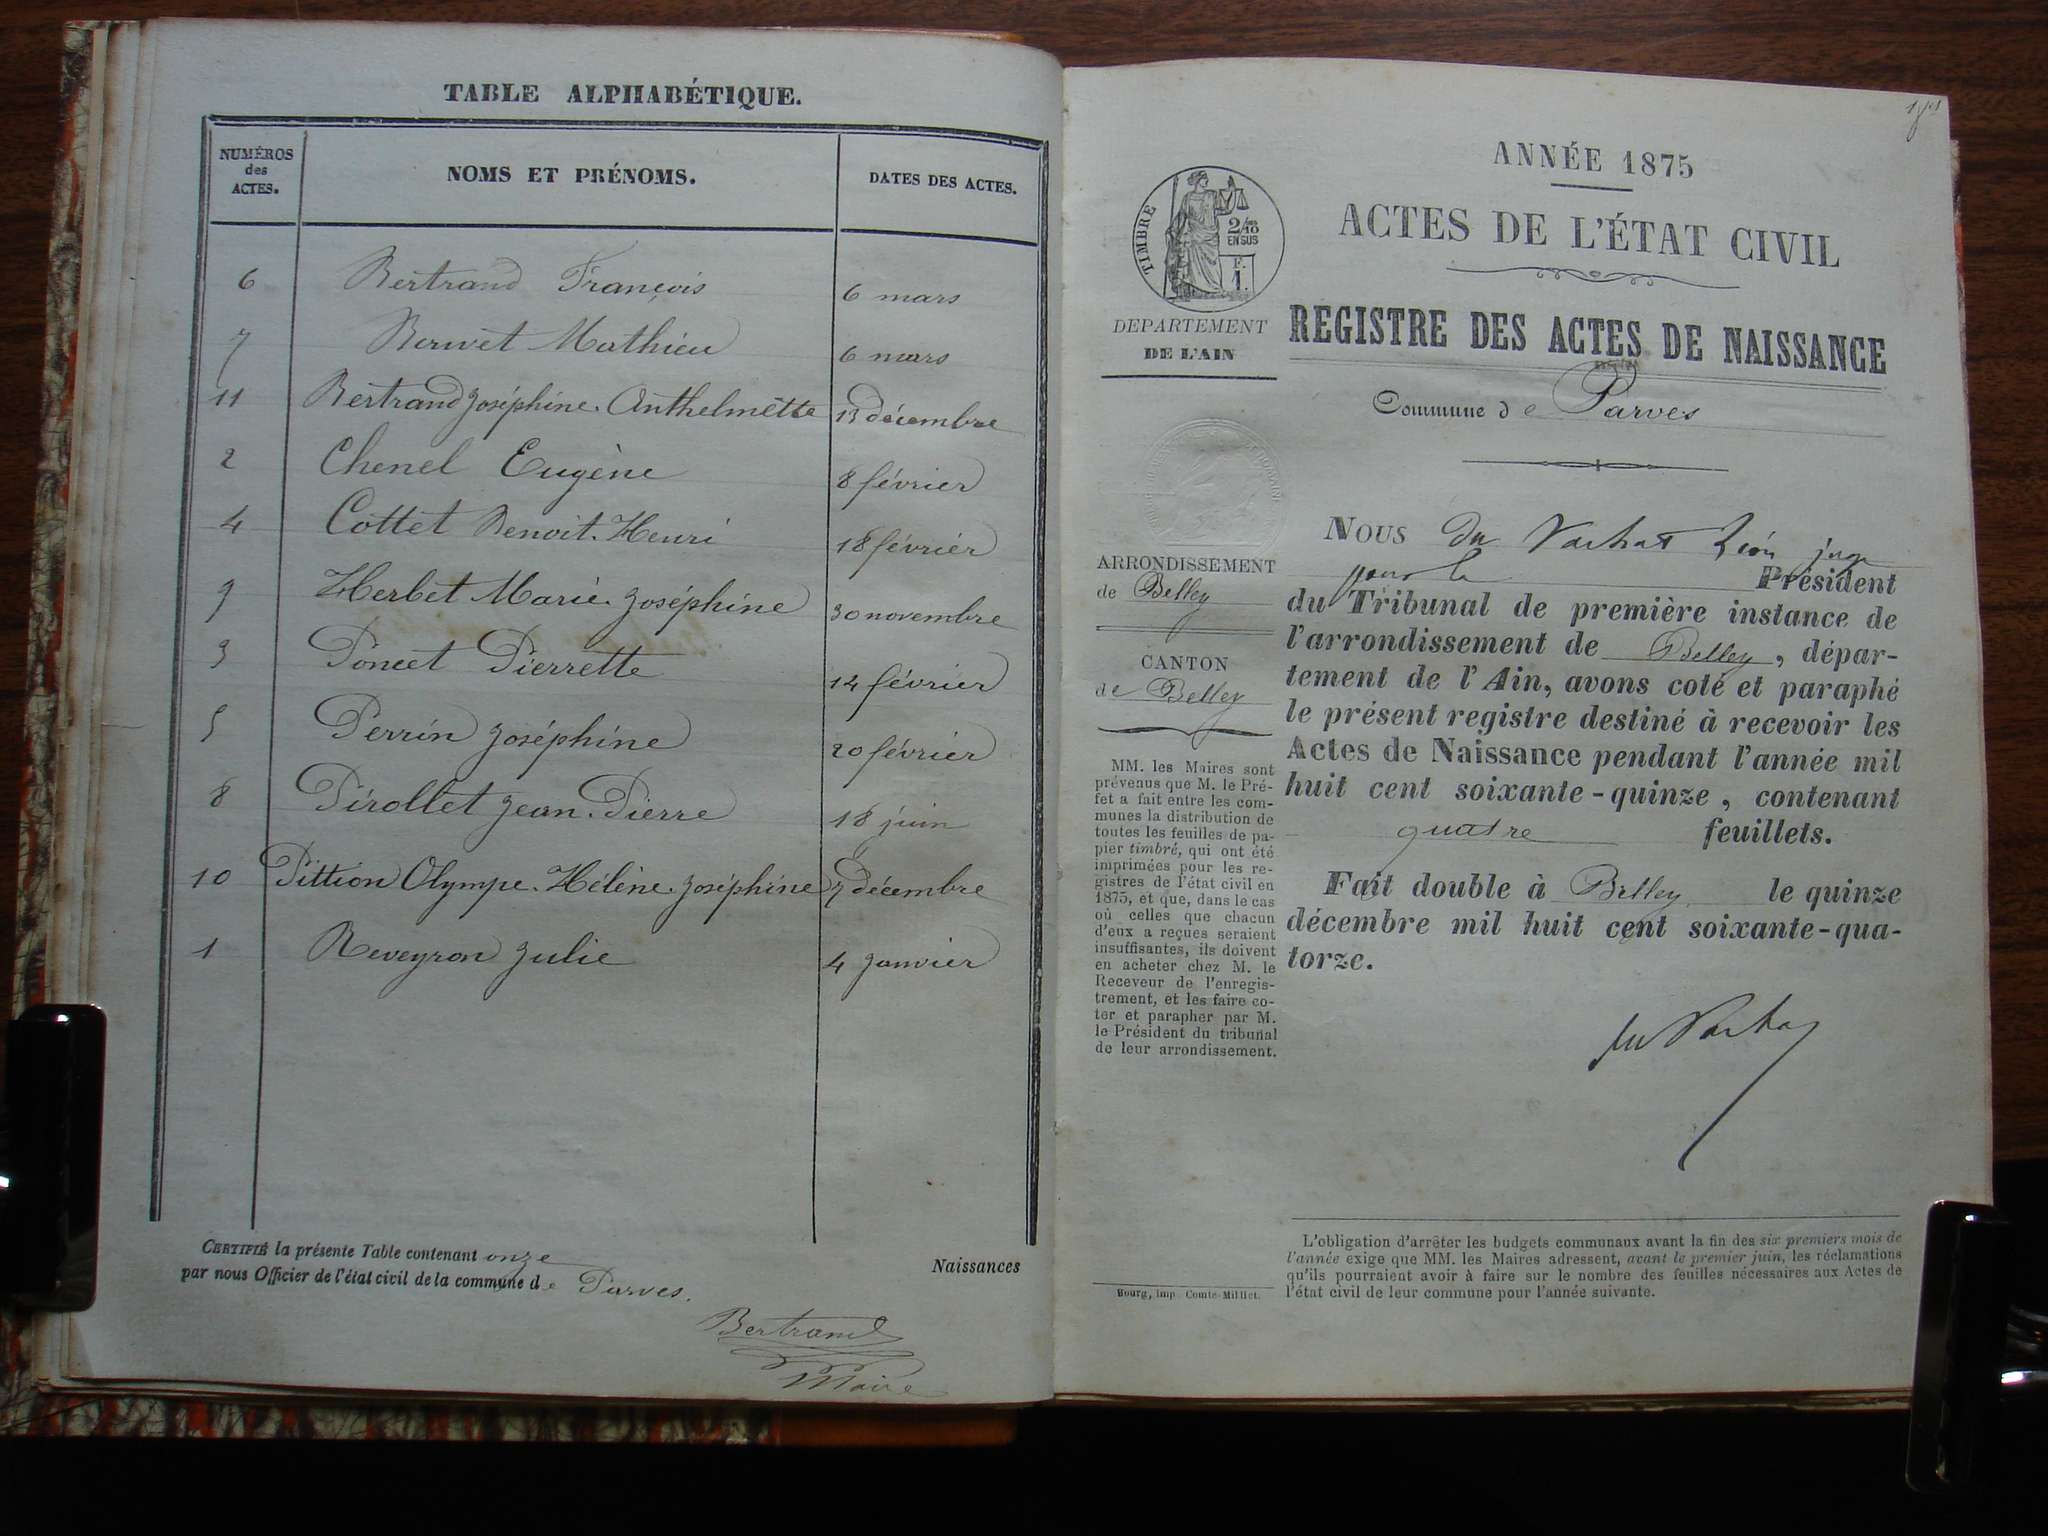 TABLE ALPHABÉTIQUE.
NUMÉROS des ACTES. NOMS ET PRÉNOMS. DATES DES ACTES.
6 Bertrand François 6 mars
7 Mathieu 6 mars
11 Bertrand Joséphine. Anthelmette 13 décembre
2 Chenel Eugène 8 février
4 Cottet Benoit. Henri 18 février
9 Herbet Marie. Joséphine 30 novembre
3 Poncet Pierrette 14 février
5 Perrin Joséphine 20 février
8 Pirollet Jean. Pierre 18 juin
10 Pittion Olympe. Hélène. Joséphine 7 décembre
1 Reveyron Julie 4 Janvier
CERTIFIÉ la présente Table contenant onze Naissances
par nous Officier de l'état civil de la commune de Parves.
Bertrand
Maire
ANNÉE 1875
ACTES DE L'ÉTAT CIVIL
REGISTRE DES ACTES DE NAISSANCE
Commune de Parves
TIMBRE
2/10
EN SUS
F.
1.
DÉPARTEMENT
DE L'AIN
ARRONDISSEMENT
de Belley
CANTON
de Belley
MM. les Maires sont
prévenus que M. le Pré-
fet a fait entre les com-
munes la distribution de
toutes les feuilles de pa-
pier timbré, qui ont été
imprimées pour les re-
gistres de l'état civil en
1875, et que, dans le cas
où celles que chacun
d'eux a reçues seraient
insuffisantes, ils doivent
en acheter chez M. le
Receveur de l'enregis-
trement, et les faire co-
ter et parapher par M.
le Président du tribunal
de leur arrondissement.
Bourg, imp. Comte-Milliet.
NOUS du Léon juge
pour le Président
du Tribunal de première instance de
l'arrondissement de Belley, dépar-
tement de l'Ain, avons coté et paraphé
le présent registre destiné à recevoir les
Actes de Naissance pendant l'année mil
huit cent soixante-quinze, contenant
quatre feuillets.
Fait double à Belley le quinze
décembre mil huit cent soixante-qua-
torze.
L'obligation d'arrêter les budgets communaux avant la fin des six premiers mois de
l'année exige que MM. les Maires adressent, avant le premier juin, les réclamations
qu'ils pourraient avoir à faire sur le nombre des feuilles nécessaires aux Actes de
l'état civil de leur commune pour l'année suivante.